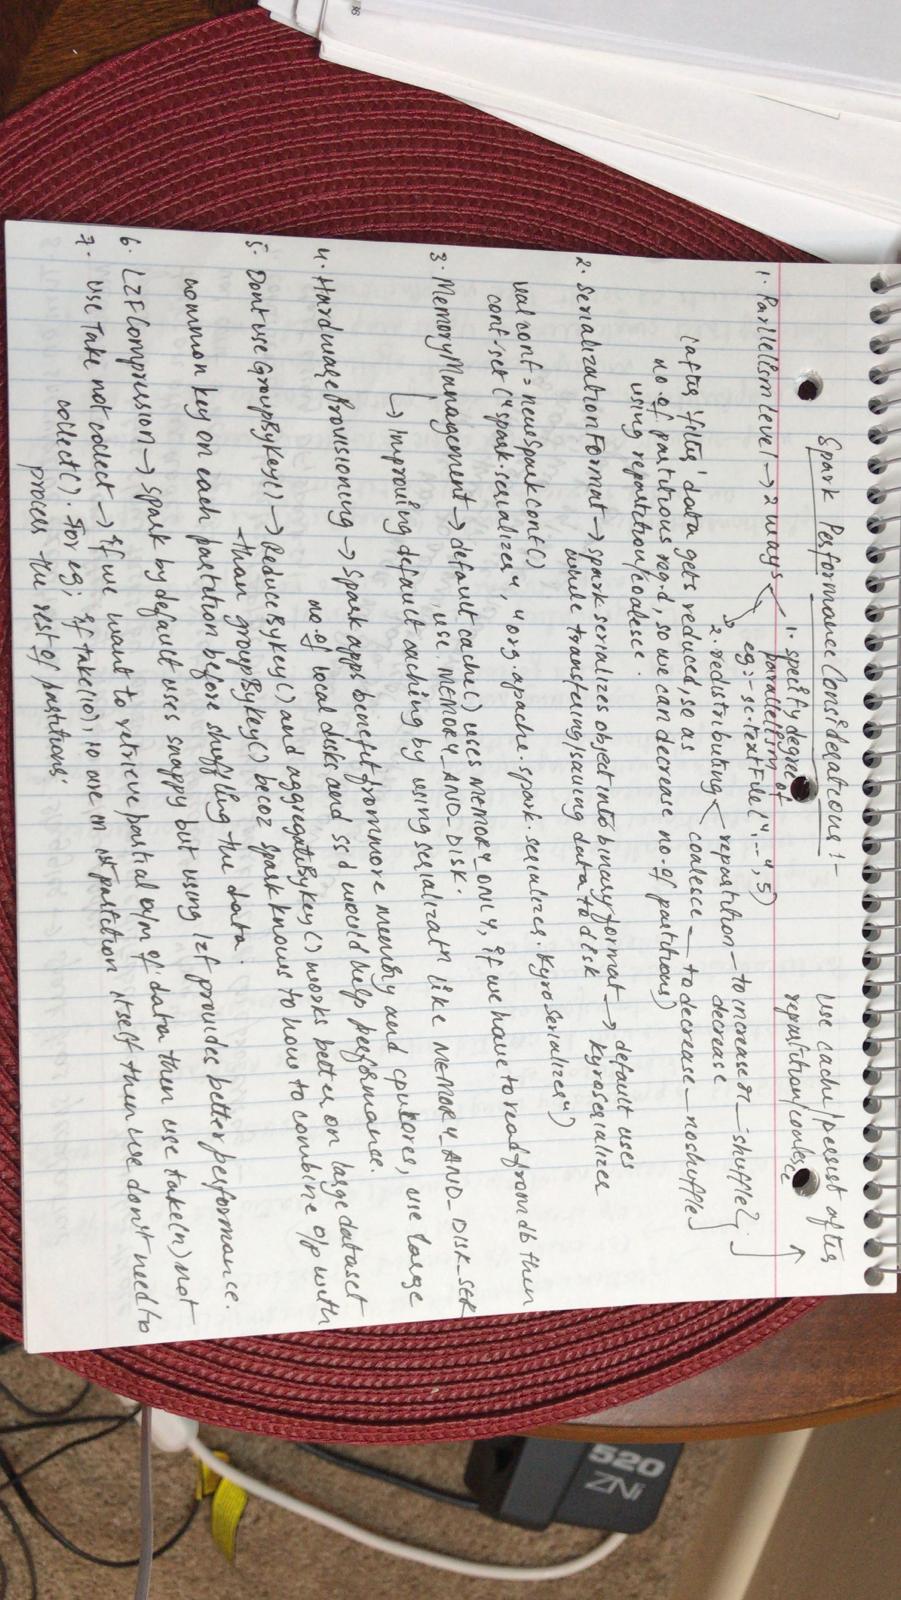 Spark Performance Considerations :-
Use cache/persist after
repartition/coalesce
1. Parllelism level → 2 ways
1. specify degree of
parallelism
eg:- sc.textFile("...", 5)
2. redistributing
repartition — to increase or — shuffle
decrease
coalesce — to decrease — no shuffle
(after 'filter' data gets reduced, so as
no. of partitions reqd, so we can decrease no. of partitions)
using repartition/coalesce.
2. Serialization Format → spark serializes object into binary format → default uses
while transfering/saving data to disk
kyroserializer
val conf = new SparkConf()
conf.set("spark.serializer", "org.apache.spark.serializer.KyroSerializer")
3. Memory Management → default cache() uses MEMORY_ONLY, if we have to read from db then
, use MEMORY_AND_DISK.
↳ Improving default caching by using serializatn like MEMORY_AND_DISK_SER
4. Hardware Provisioning → Spark apps benefit from more memory and cpu cores, use large
no. of local disks and ssd would help performance.
5. Dont use GroupByKey() → ReduceByKey() and aggregateByKey() works better on large dataset
than groupByKey() becoz spark knows to how to combine o/p with
common key on each partition before shuffling the data.
6. LZF Compression → spark by default uses snappy but using lzf provides better performance.
7. Use Take not collect → if we want to retrieve partial of data then use take(n) not
collect(). For eg; if take(10), 10 are in 1st partition itself then we don't need to
process the rest of partitions.
520
ZNi